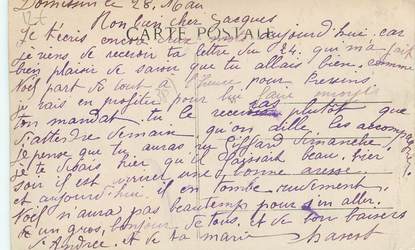 le 28, Mai
Mon bien cher Jacques
Je t'écris encore aujourd'hui, car
CARTE POSTALE
je viens de recevoir ta lettre du 24. qui m'a fait
bien plaisir de savoir que tu allais bien, comme
part de tout à l'heure pour
je vais en profiter pour lui faire
ton mandat. tu le plutôt que
d'attendre demain qu'on aille, les
Je pense que tu auras vu Giffard dimanche,
je te disais hier qu'il faisait beau, hier
soir il est arrivé une bonne averse
et aujourd'hui, il en tombe rudement,
n'aura pas beau temps pour s'en aller.
un gros bonjour de tous, et de bons baisers
d'Andrée et de ta marie